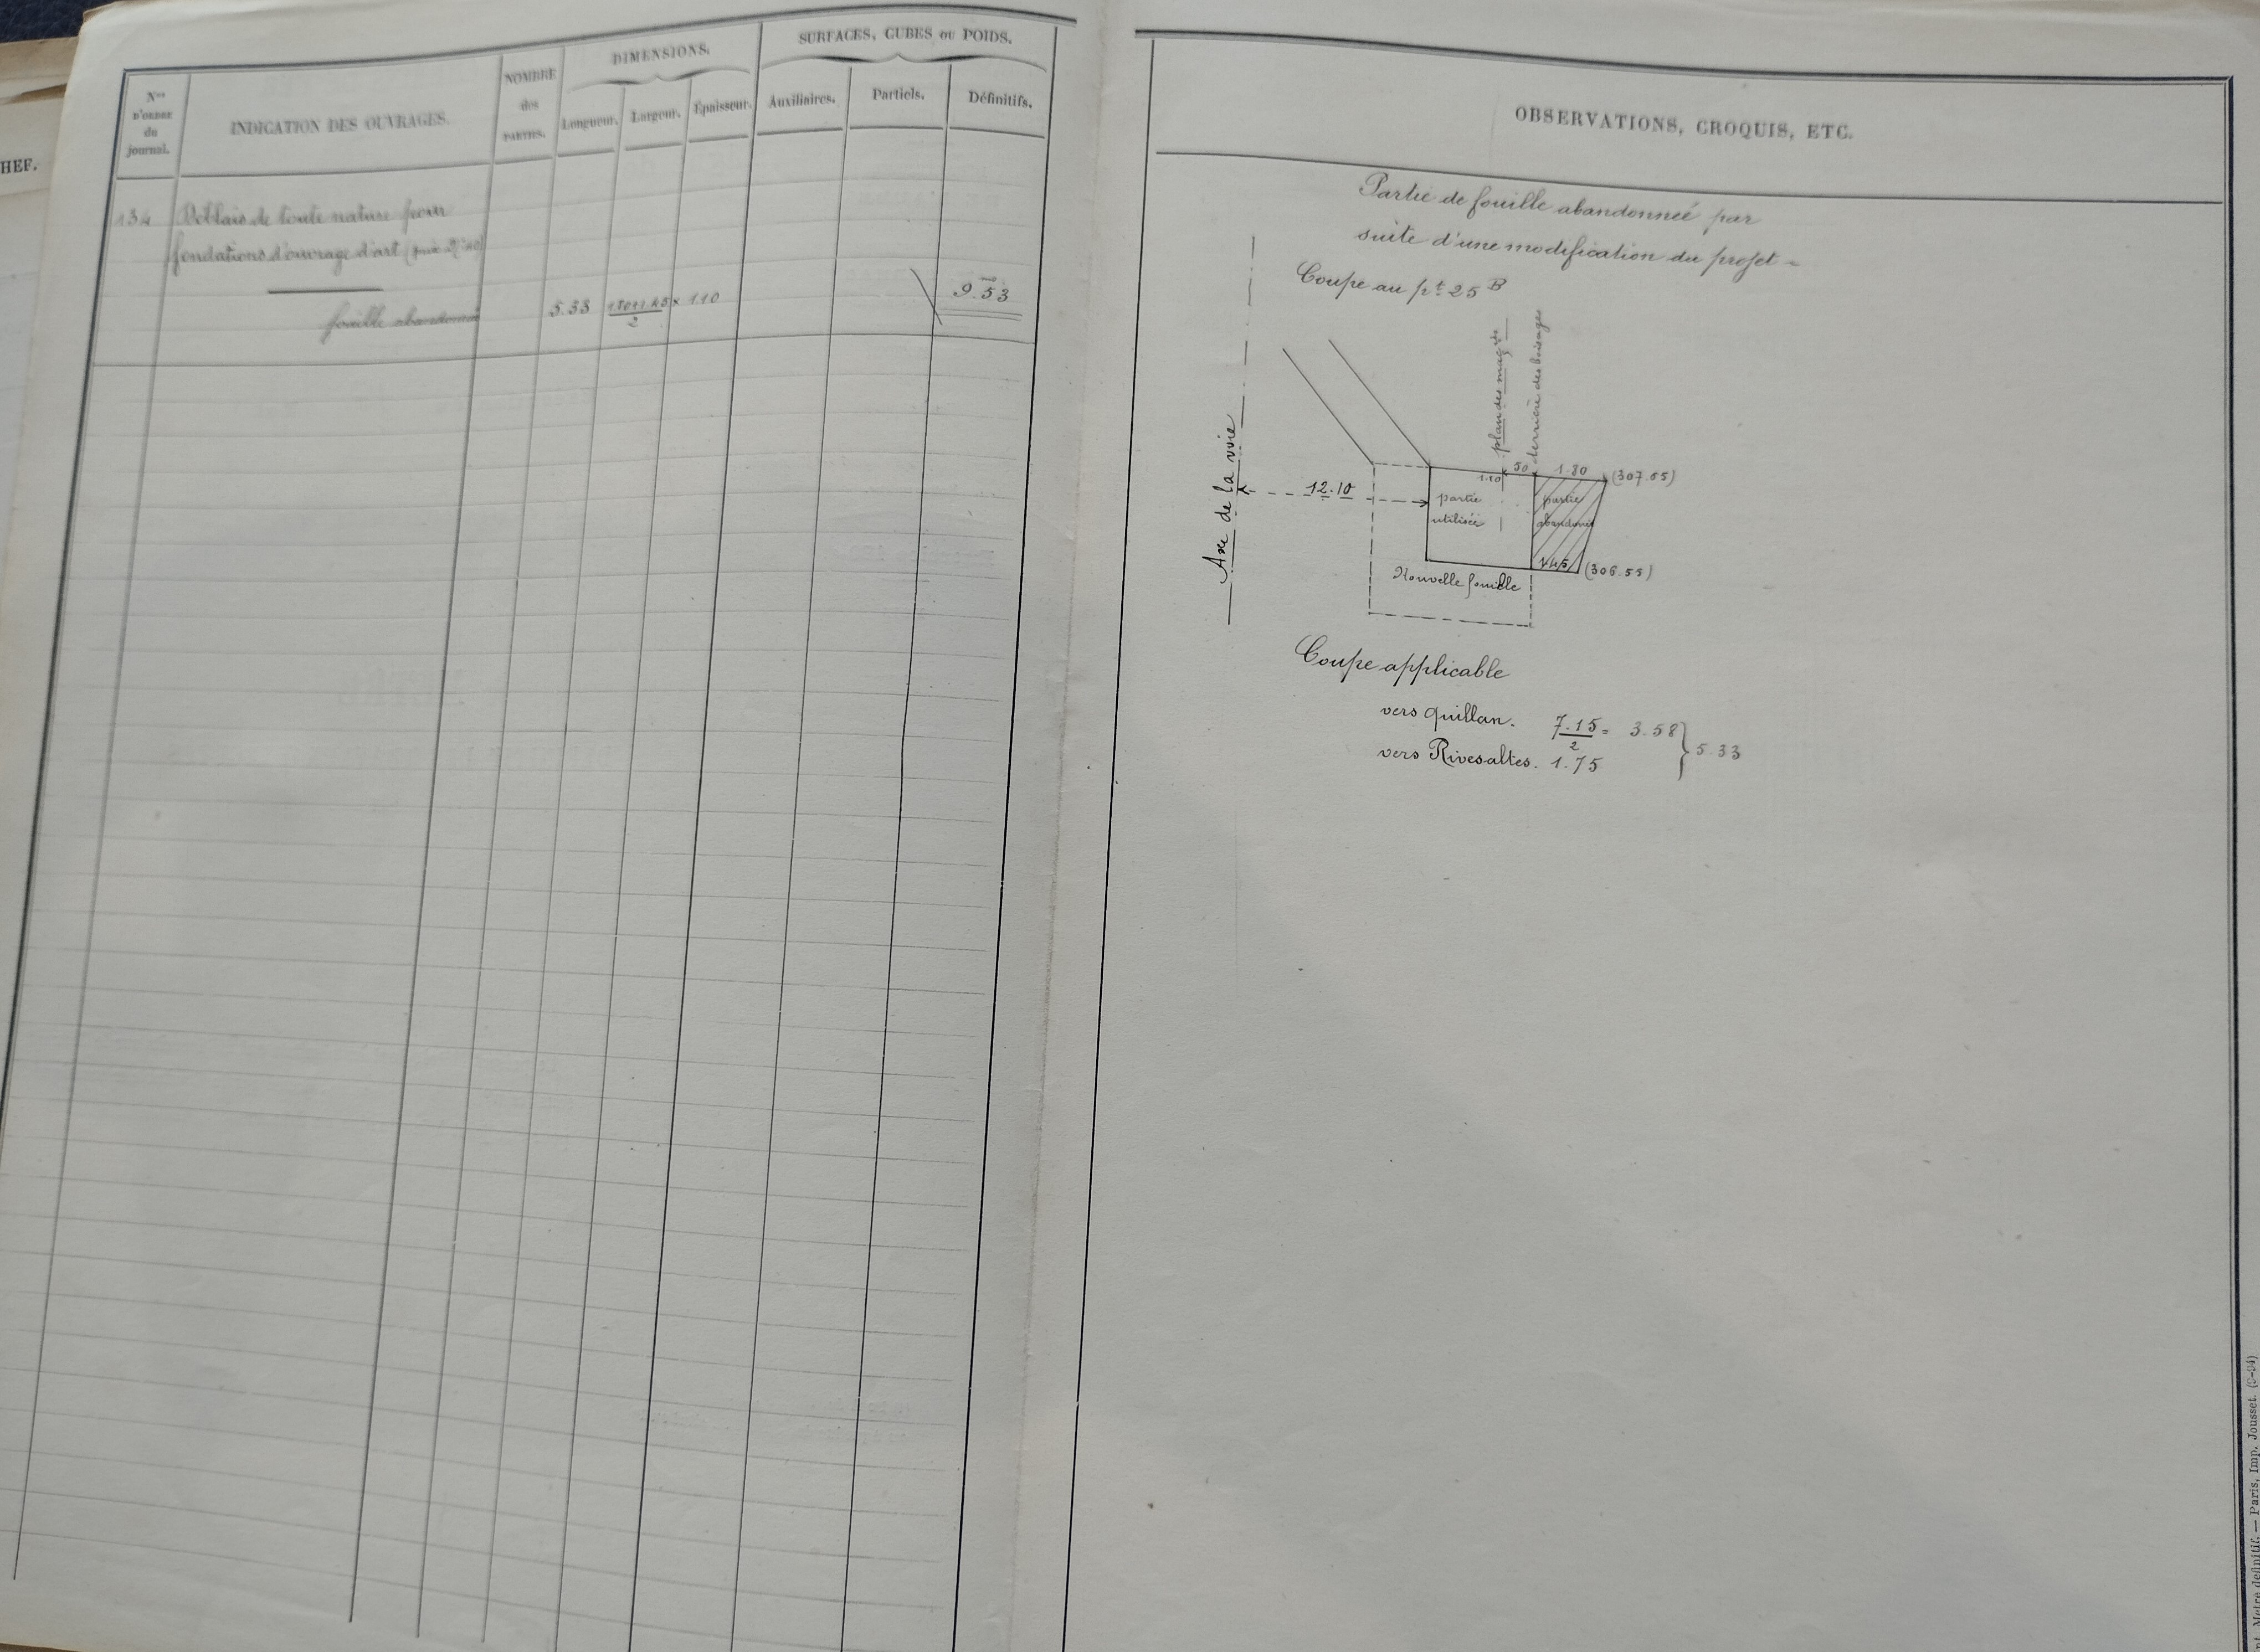 HEF.
Nos
D'ORDRE
du
journal.
INDICATION DES OUVRAGES.
NOMBRE
des
PARTIES.
DIMENSIONS.
Longueur. Largeur. Épaisseur.
SURFACES, CUBES ou POIDS.
Auxiliaires. Partiels. Définitifs.
134 Déblais de toute nature pour
fondations d'ouvrage d'art (prix 2f.40)
fouille abandonnée 5.33 1.80+1.45 × 1.10 9.53
2
OBSERVATIONS, CROQUIS, ETC.
Partie de fouille abandonnée par
suite d'une modification du projet -
Coupe au pt 25 B
Axe de la voie
plan des maçies
derrière des boisages
12.10
1.10
50
1.80
(307.65)
partie
utilisée
partie
abandonnée
1.45
(306.55)
Nouvelle fouille
Coupe applicable
vers Quillan. 7.15 = 3.58
2
5.33
vers Rivesaltes. 1.75
Métré définitif. — Paris, Imp. Jousset.